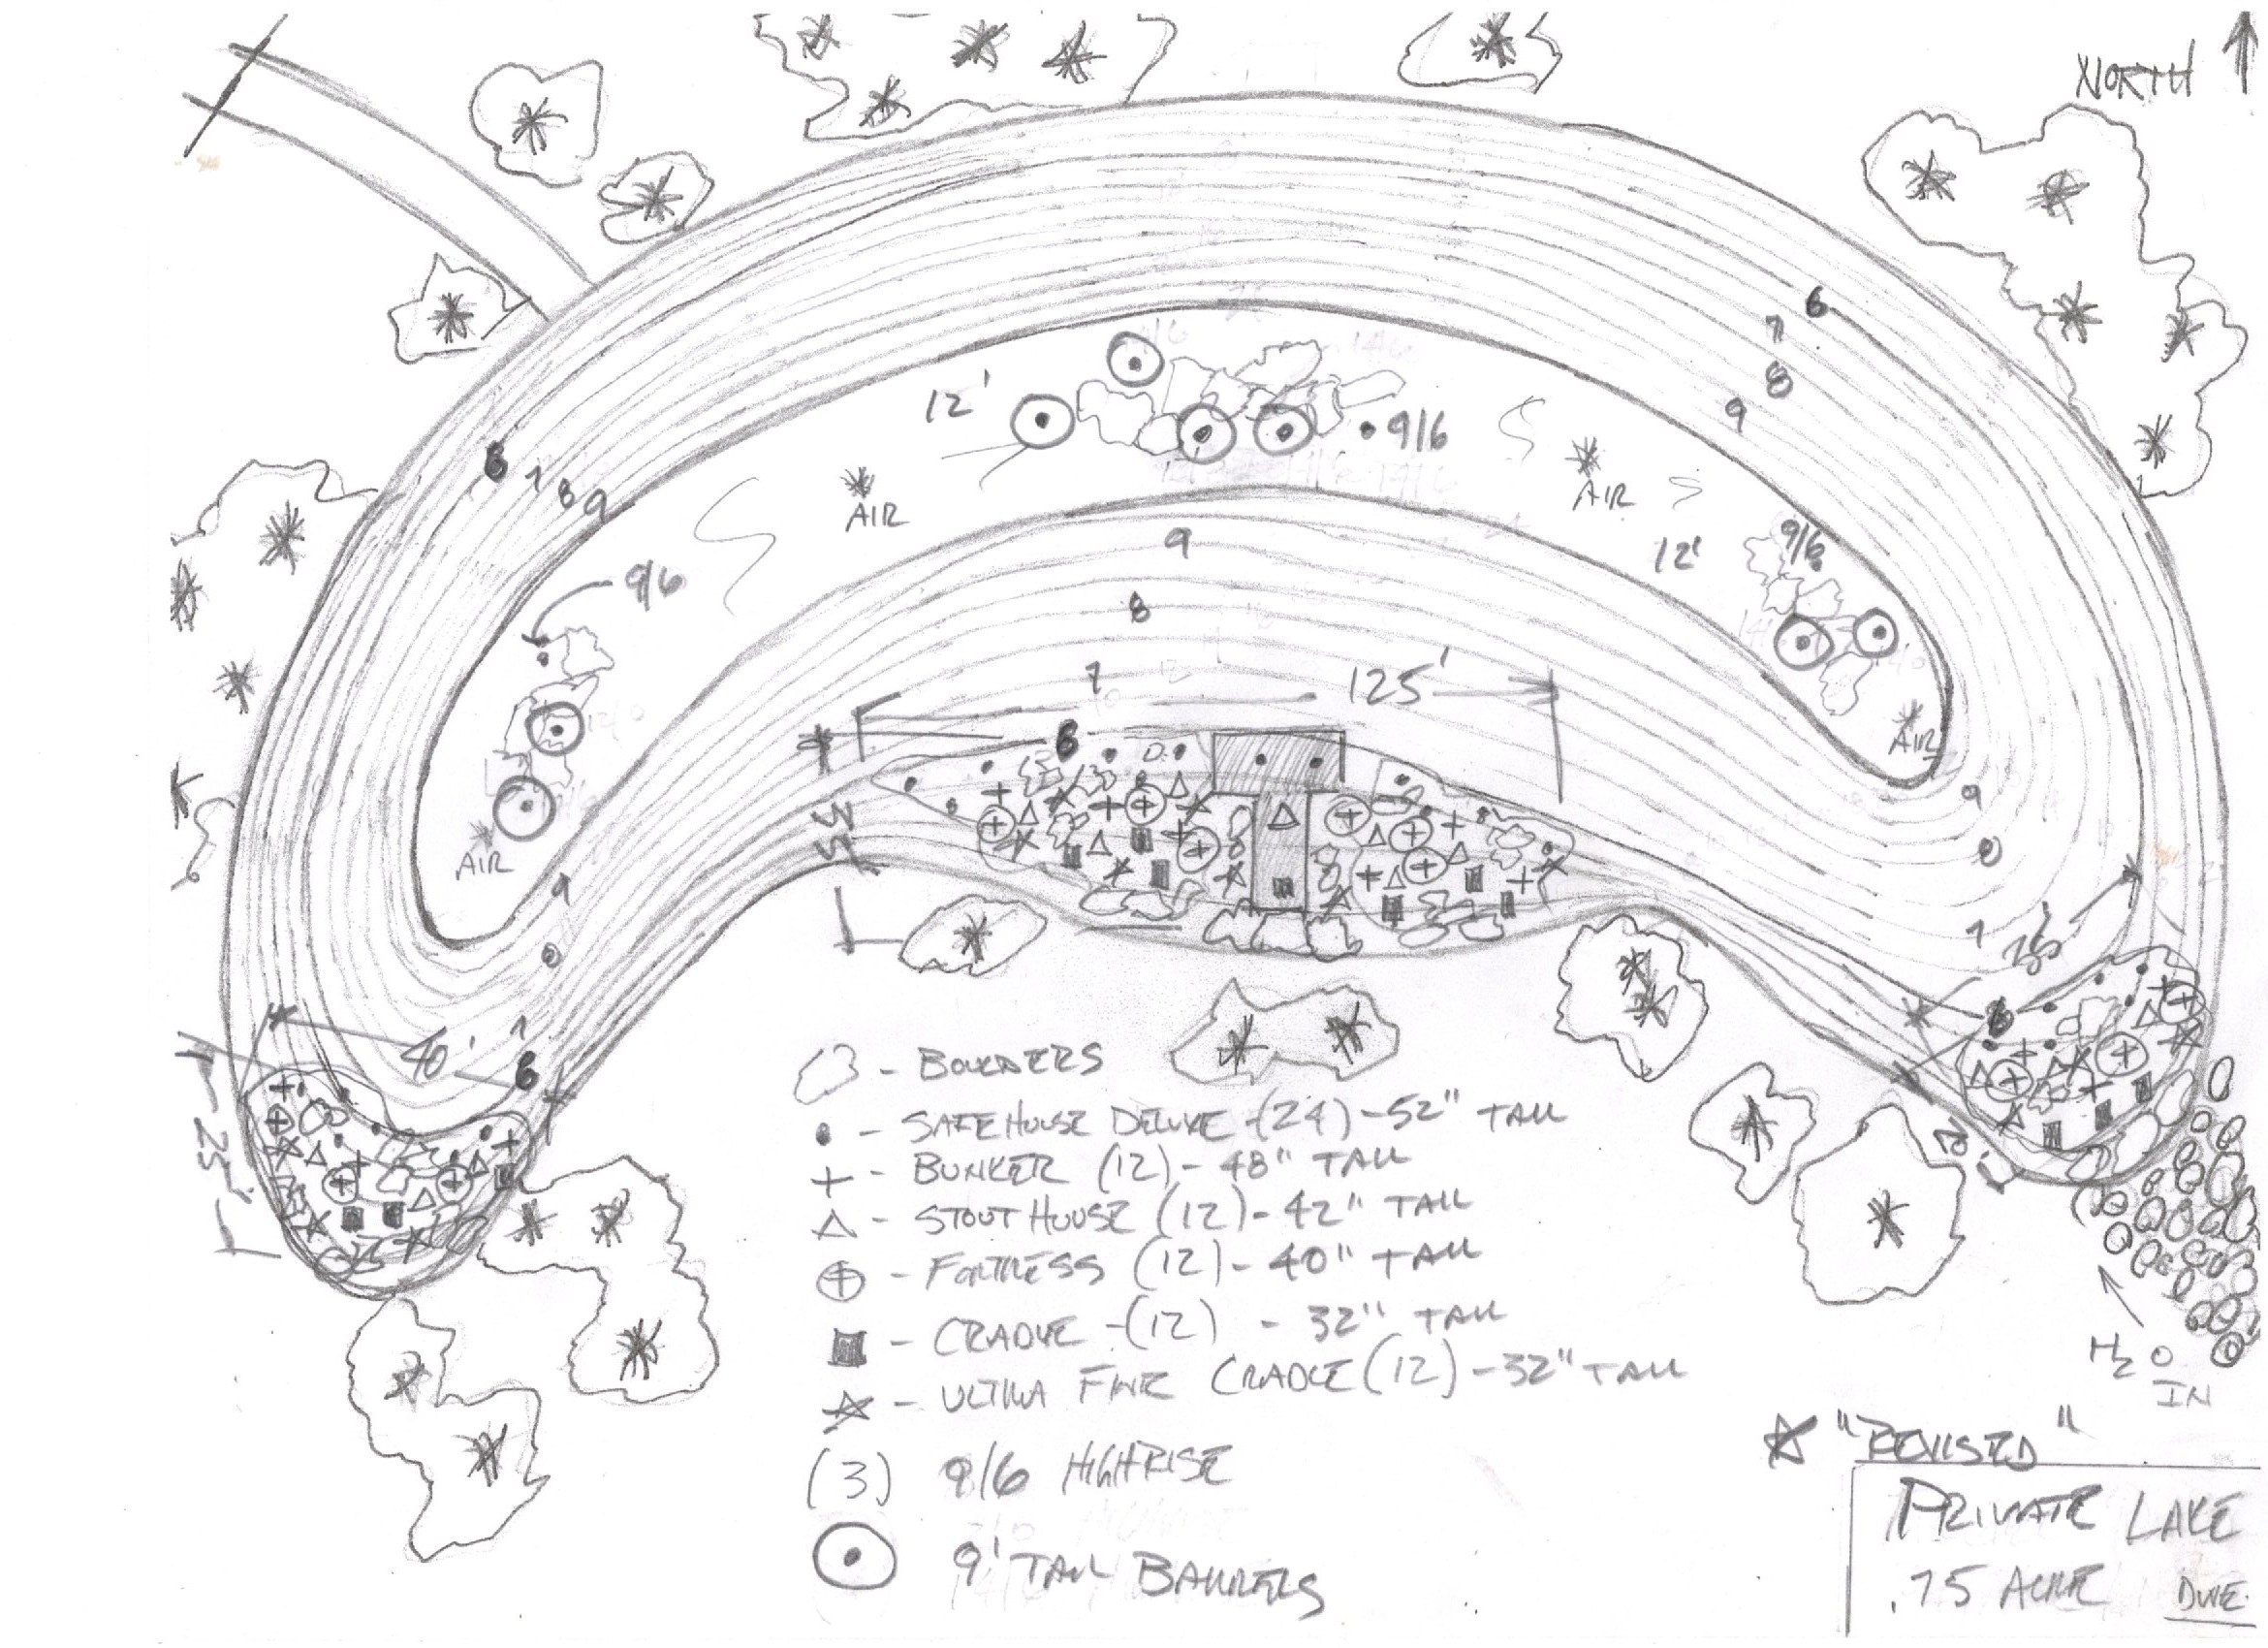 NORTH
6
7
8
9
12'
9/6
6
7
8
9
AIR
AIR
12'
9/6
9/6
9
8
7
125'
6
35'
AIR
AIR
9
8
7
6
9
8
7
6
40'
25'
- BOULDERS
- SAFEHOUSE DELUXE -(24) - 52" TALL
- BUNKER (12) - 48" TALL
- STOUT HOUSE (12) - 42" TALL
- FORTRESS (12) - 40" TALL
- CRADLE -(12) - 32" TALL
- ULTRA FINE CRADLE (12) - 32" TALL
(3) 9/6 HIGHRISE
9' TALL BARRELS
H2O
IN
"REVISED"
PRIVATE LAKE
.75 ACRE